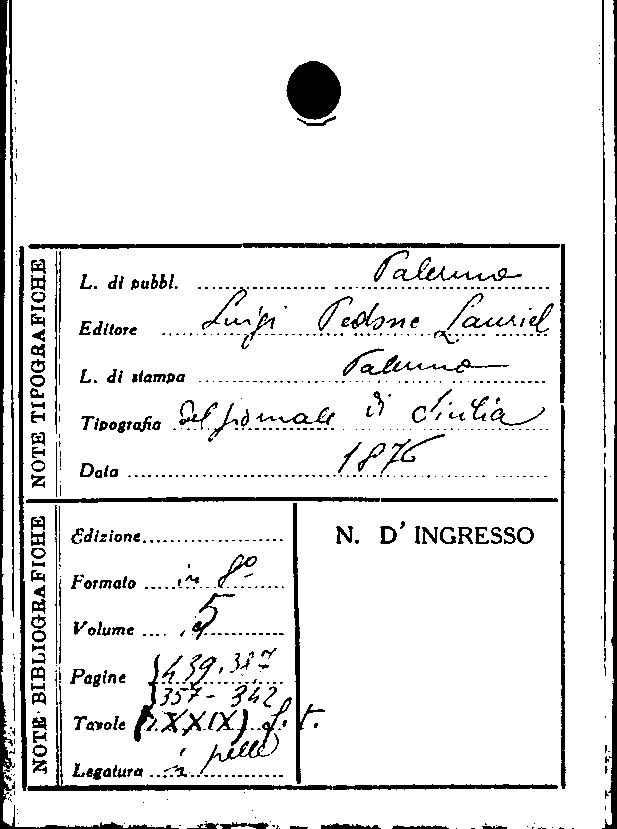 NOTE TIPOGRAFICHE
L. di pubbl. Palermo
Editore Luigi Pedone Lauriel
L. di stampa Palermo
Tipografia del giornale di Sicilia
Data 1876
NOTE BIBLIOGRAFICHE
Edizione
Formato in 8º
Volume 5
Pagine 439.387
357-342
Tavole (XXIX) f.t.
Legatura in pelle
N. D'INGRESSO